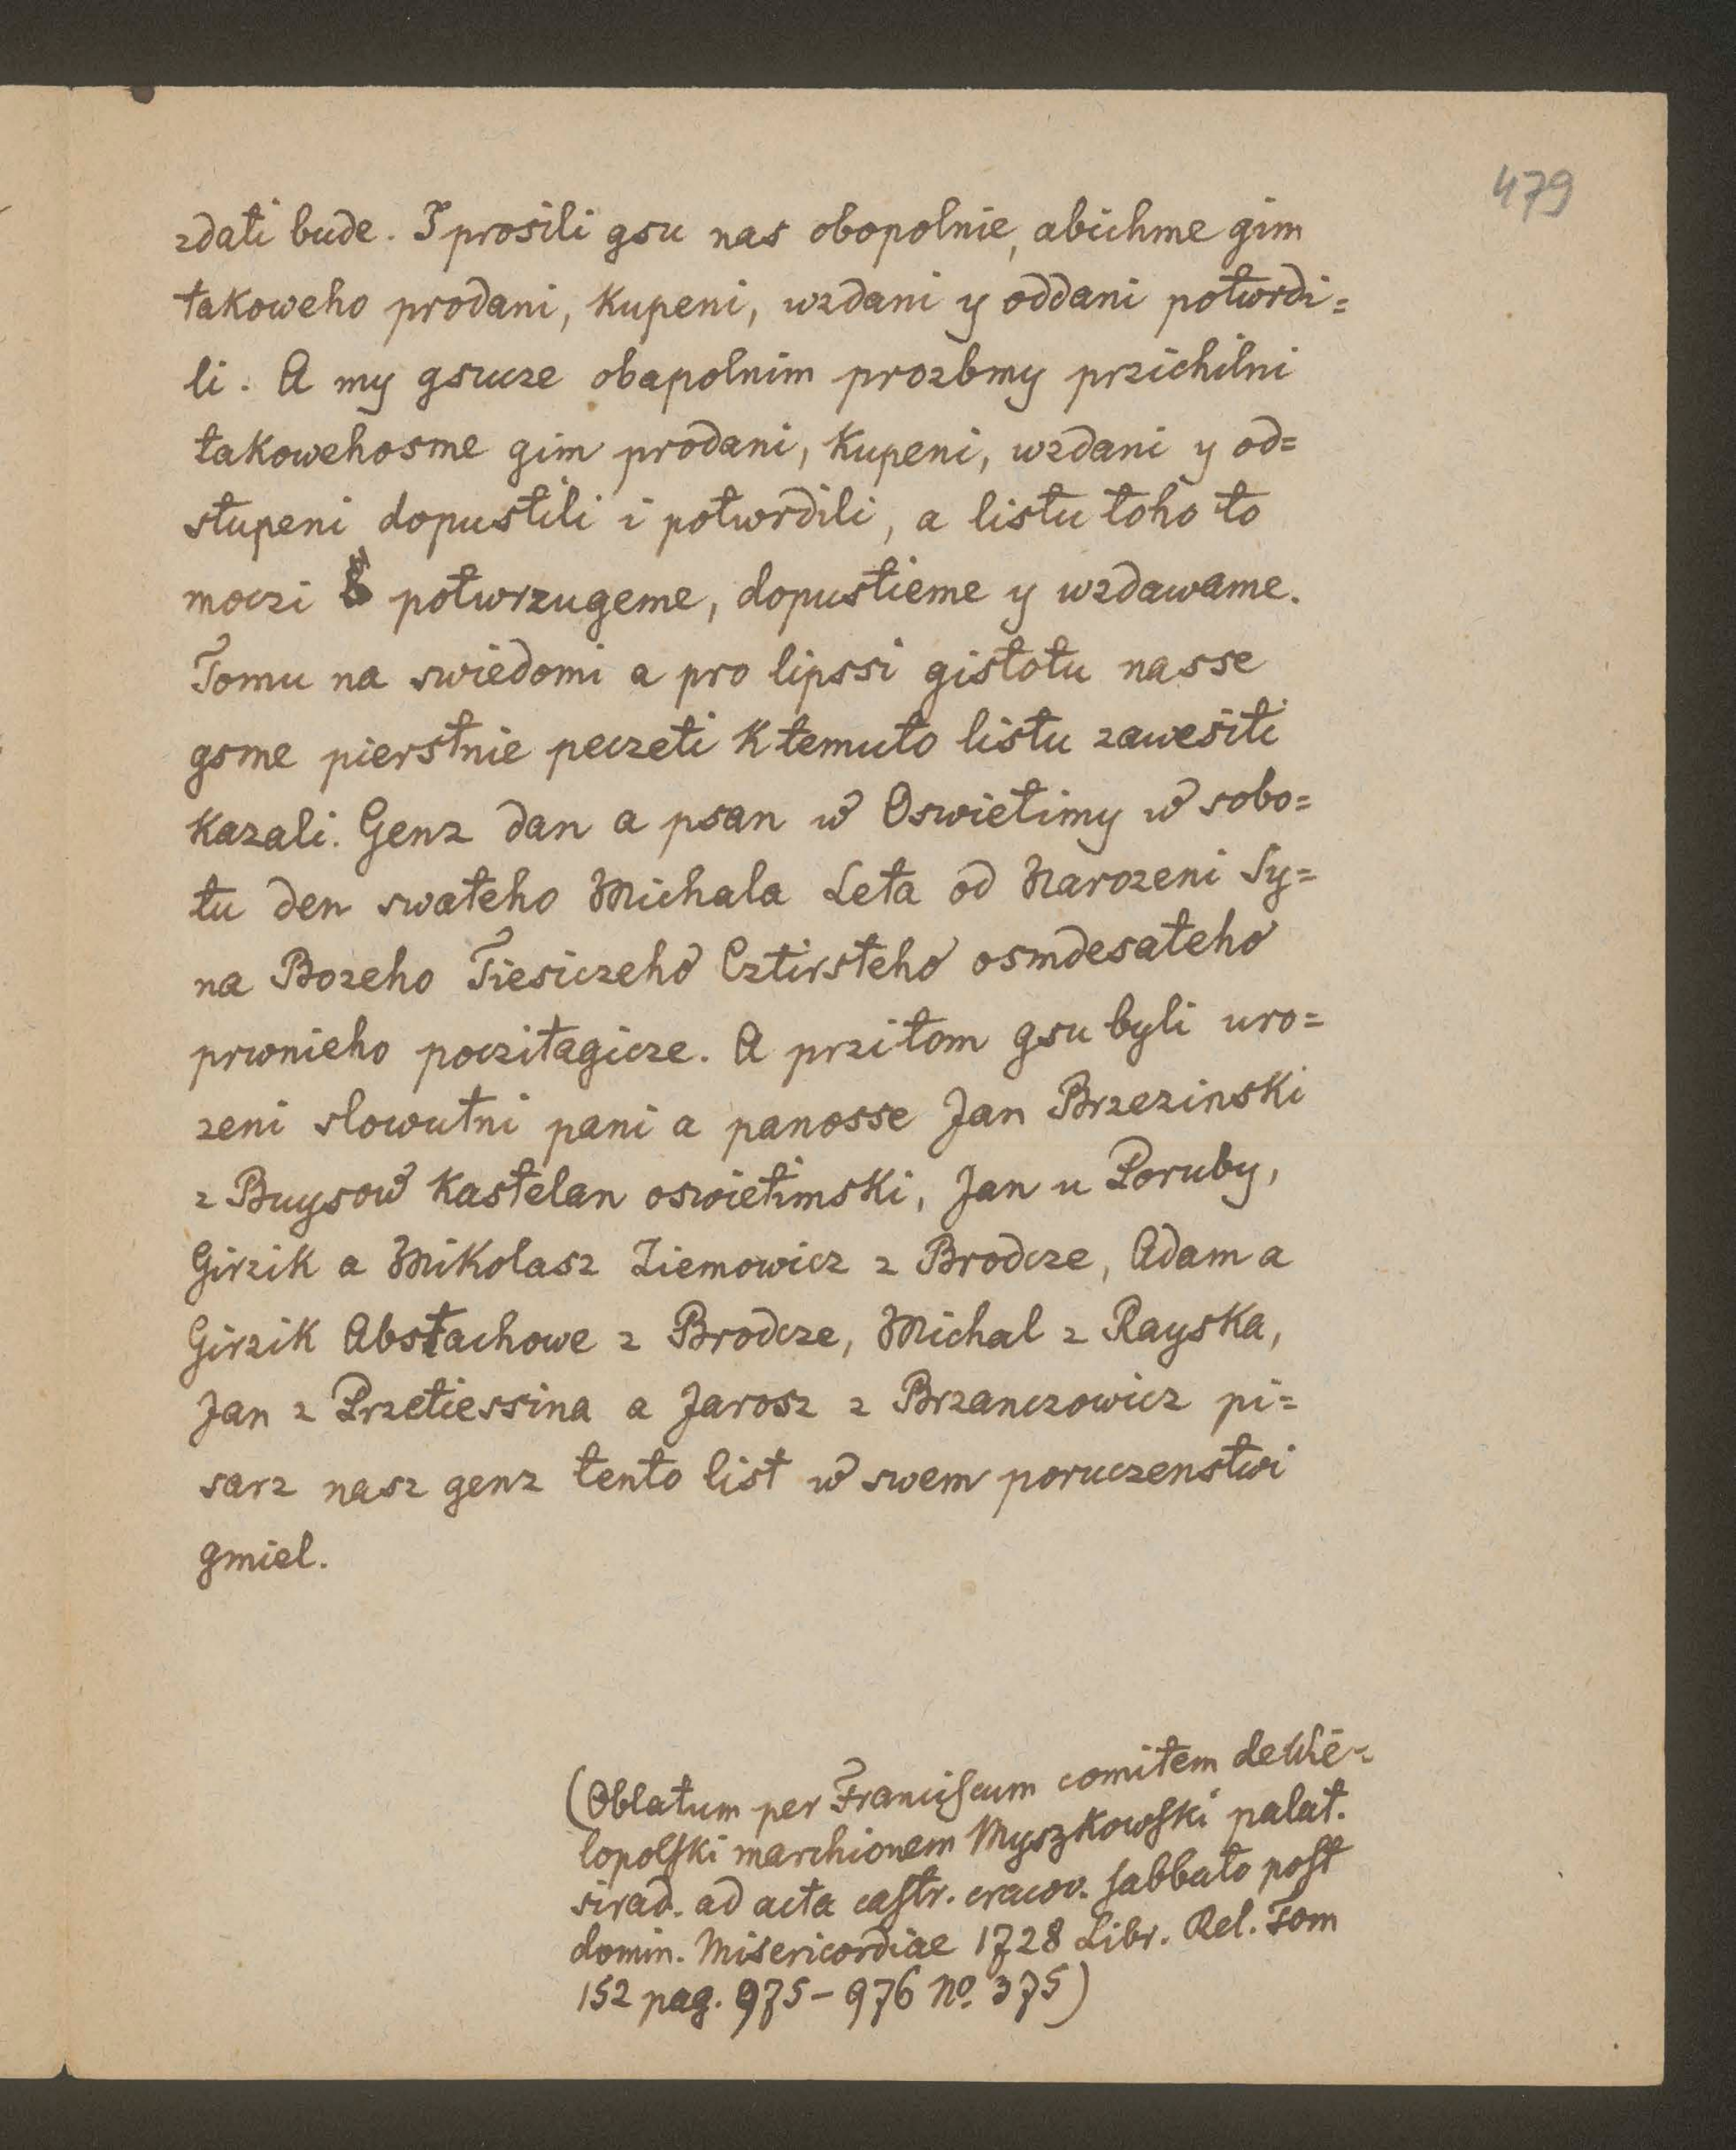 479
zdati bude. I prosili gsu nas obopolnie, abichme gim
takoweho prodani, kupeni, wzdani y oddani potwrdi=
li. A my gsucze obapolnim prozbmy przichilni
takowehosme gim prodani, kupeni, wzdani y od=
stupeni dopustili i potwrdili, a listu toho to
moczi potwrzugeme, dopustieme y wzdawame.
Tomu na swiedomi a pro lipssi gistotu nasse
gsme pierstnie peczeti k temuto listu zawesiti
kazali. Genz dan a psan w Oswietimy w sobo=
tu den swateho Michala Leta od Narozeni Sy=
na Bozeho Tiesiczeho Cztirsteho osmdesateho
prwnieho poczitagicze. A przitom gsu byli uro=
zeni slowutni pani a panosse Jan Brzezinski
z Buysow kastelan oswietimski, Jan u Poruby,
Girzik a Mikolasz Ziemowicz z Brodcze, Adam a
Girzik Abstachowe z Brodcze, Michal z Rayska,
Jan z Przetiessina a Jarosz z Brzanczowicz pi=
sarz nasz genz tento list w swem poruczenstwi
gmiel.
(Oblatum per Franciscum comitem de Wie-
lopolski marchionem Myszkowski palat.
sirad. ad acta castr. cracov. sabbato post
domin. Misericordiae 1728 Libr. Rel. Tom
152 pag. 975-976 No. 375)